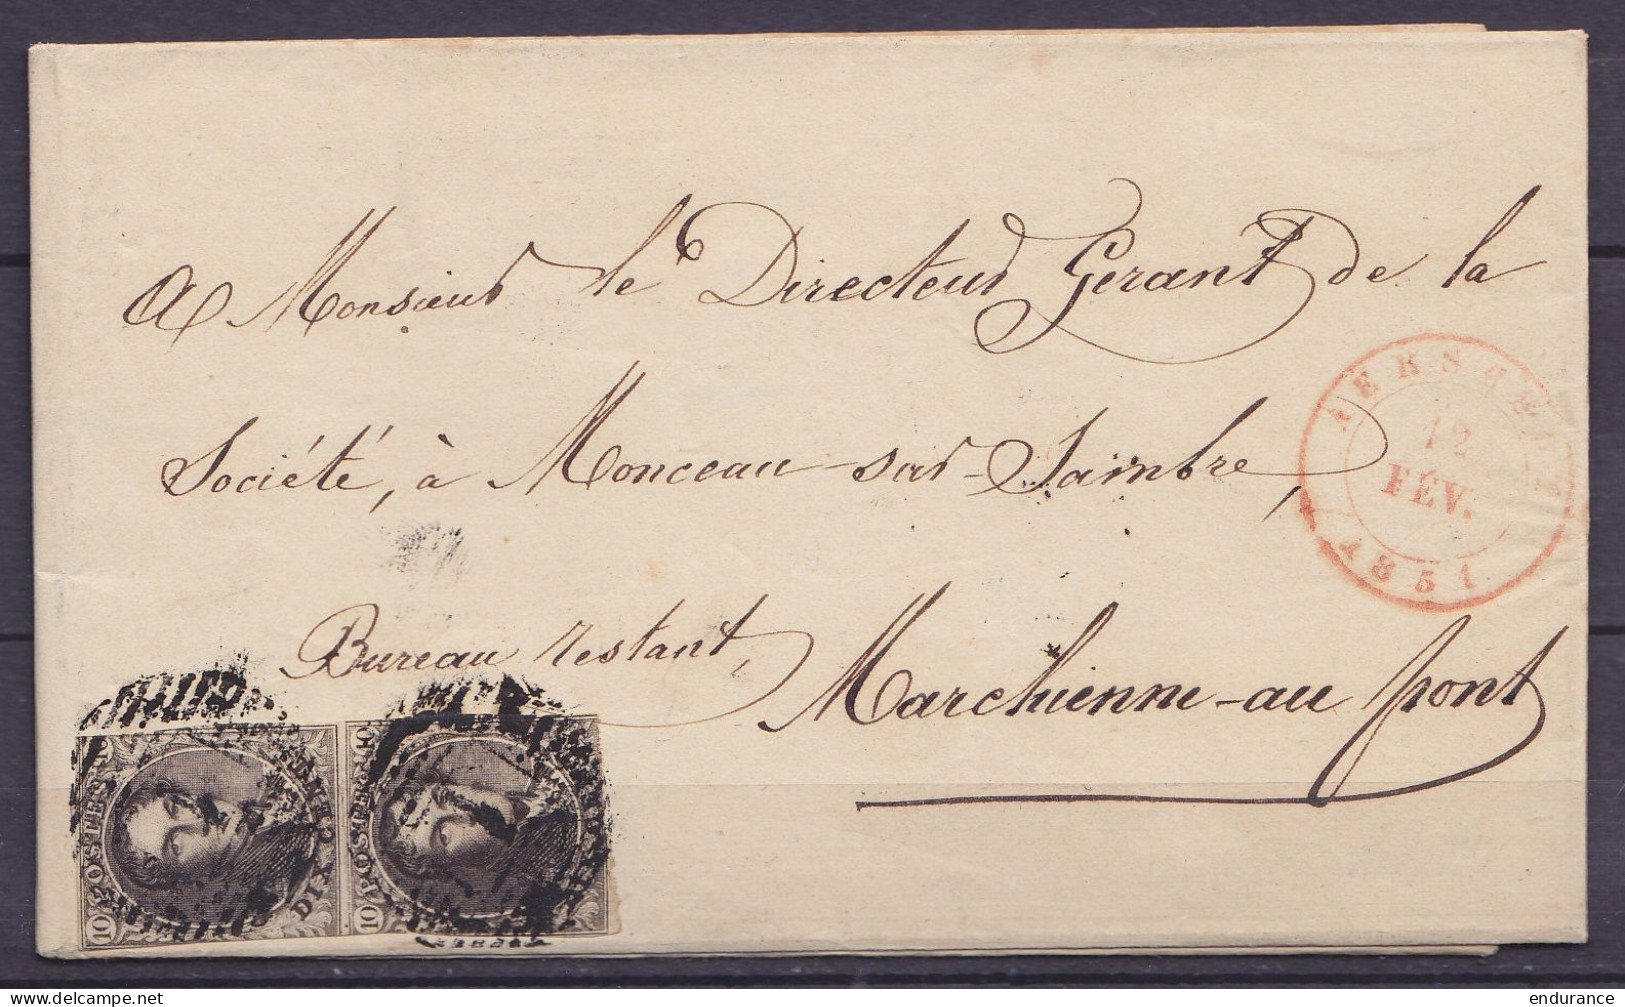 A Monsieur le Directeur Gerant de la
Société, à Monceau-sur-Sambre,
Bureau restant, Marchienne-au pont
12
FÉV.
1851
10 POSTES 10
DIX CENTIMES
10 POSTES 10
delcampe.net
endurance